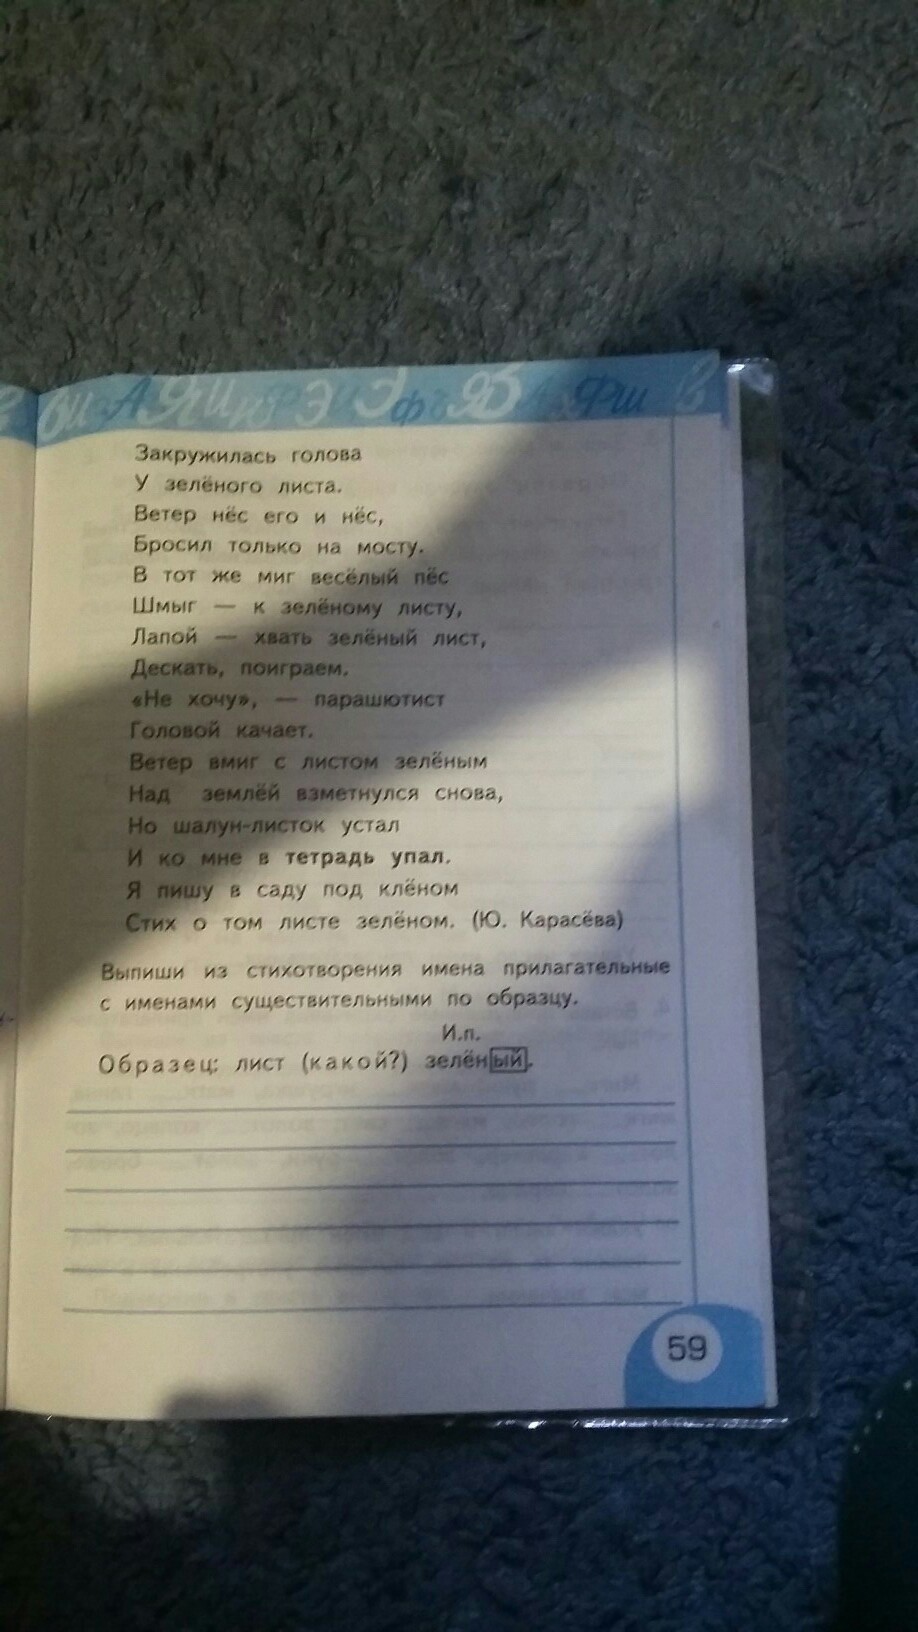 Закружилась голова
У зелёного листа.
Ветер нёс его и нёс,
Бросил только на мосту.
В тот же миг весёлый пёс
Шмыг — к зелёному листу,
Лапой — хвать зелёный лист,
Дескать, поиграем.
«Не хочу», — парашютист
Головой качает.
Ветер вмиг с листом зелёным
Над землёй взметнулся снова,
Но шалун-листок устал
И ко мне в тетрадь упал.
Я пишу в саду под клёном
Стих о том листе зелёном. (Ю. Карасёва)
Выпиши из стихотворения имена прилагательные
с именами существительными по образцу.
И.п.
Образец: лист (какой?) зелёный.
59